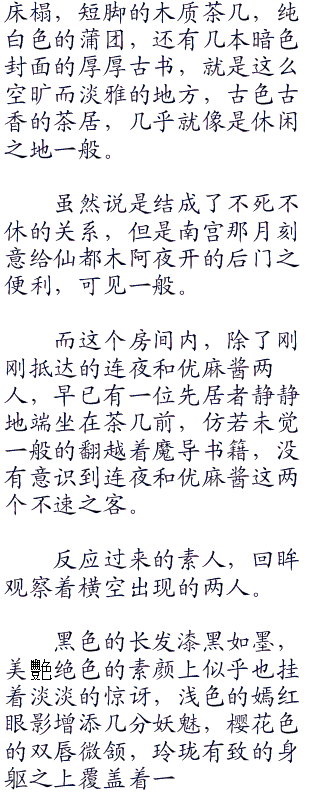 床榻，短脚的木质茶几，纯
白色的蒲团，还有几本暗色
封面的厚厚古书，就是这么
空旷而淡雅的地方，古色古
香的茶居，几乎就像是休闲
之地一般。
虽然说是结成了不死不
休的关系，但是南宫那月刻
意给仙都木阿夜开的后门之
便利，可见一般。
而这个房间内，除了刚
刚抵达的连夜和优麻酱两
人，早已有一位先居者静静
地端坐在茶几前，仿若未觉
一般的翻越着魔导书籍，没
有意识到连夜和优麻酱这两
个不速之客。
反应过来的素人，回眸
观察着横空出现的两人。
黑色的长发漆黑如墨，
美艷绝色的素颜上似乎也挂
着淡淡的惊讶，浅色的嫣红
眼影增添几分妖魅，樱花色
的双唇微颔，玲珑有致的身
躯之上覆盖着一